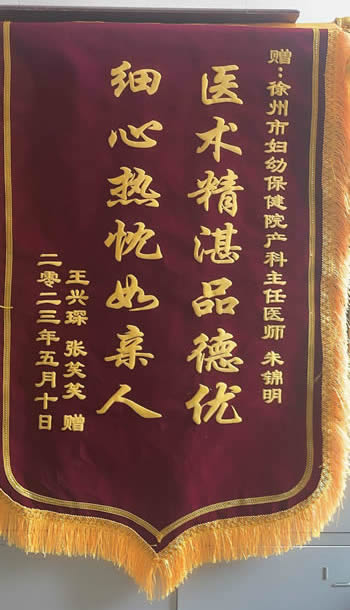 赠：徐州市妇幼保健院产科主任医师 朱锦明
医术精湛品德优
细心热忱如亲人
王兴琛 张笑笑 赠
二零二三年五月十日